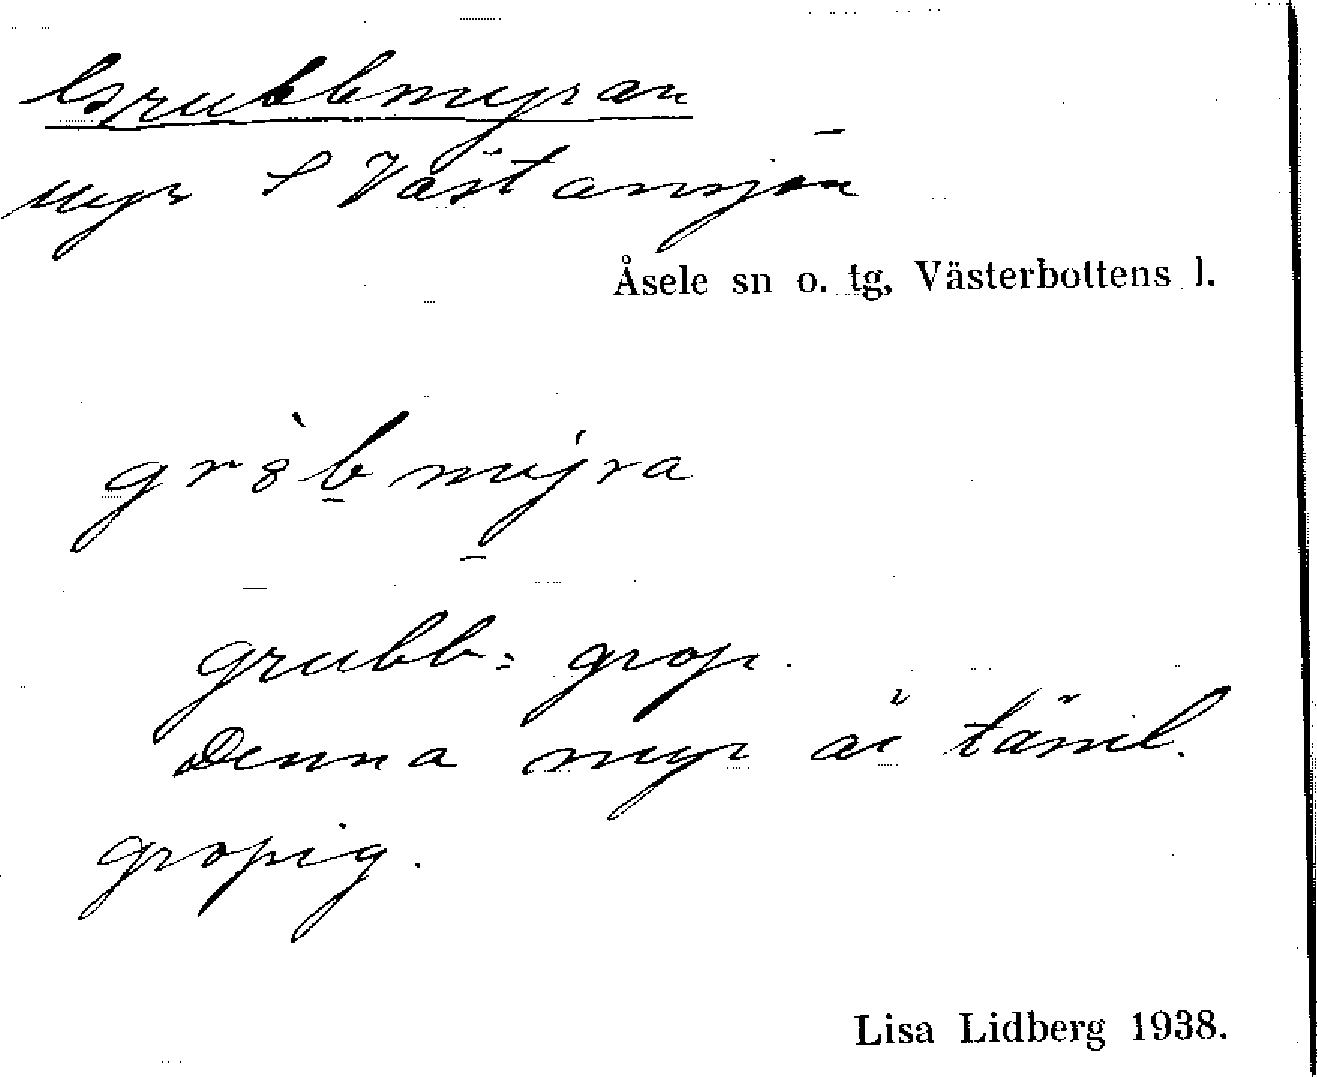 Grubbmyran
myr S Västansjön
Åsele sn o. tg, Västerbottens l.
gr8̀b mýra
grubb = grop.
Denna myr är täml.
gropig.
Lisa Lidberg 1938.